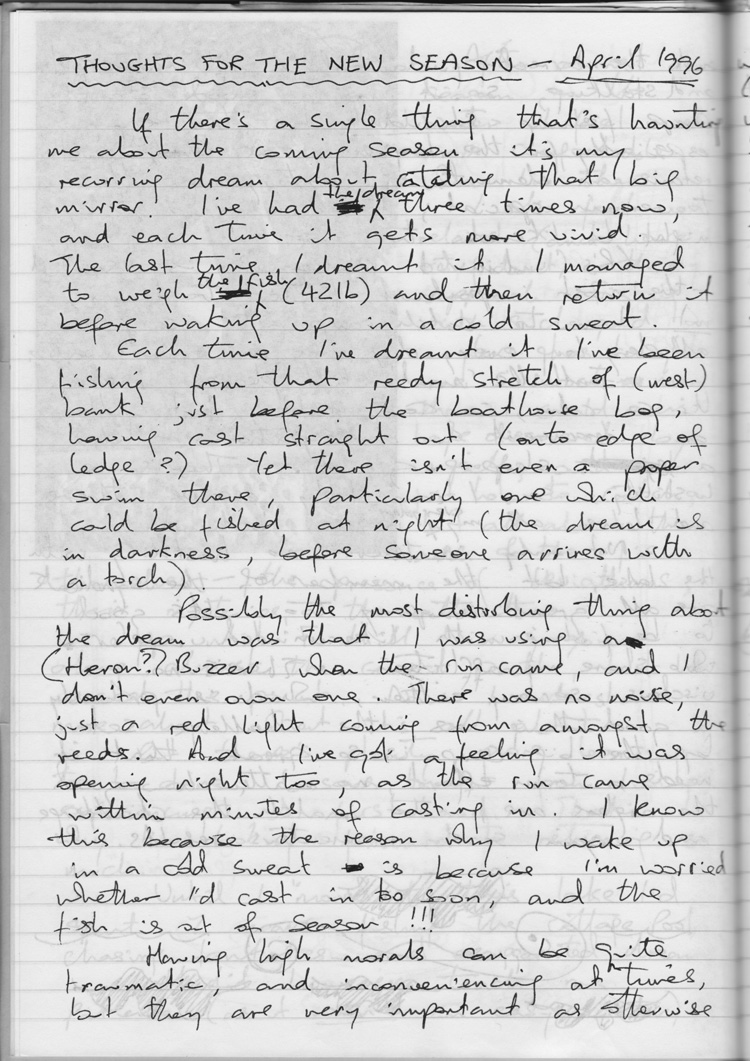 THOUGHTS FOR THE NEW SEASON - April 1996
If there's a single thing that's haunting
me about the coming season it's my
recurring dream about catching that big
mirror. I've had the dream three times now,
and each time it gets more vivid.
The last time I dreamt it I managed
to weigh the fish (42lb) and then return it
before waking up in a cold sweat.
Each time I've dreamt it I've been
fishing from that reedy stretch of (west)
bank just before the boathouse bog,
having cast straight out (onto edge of
ledge?) Yet there isn't even a proper
swim there, particularly one which
could be fished at night (the dream is
in darkness, before someone arrives with
a torch)
Possibly the most disturbing thing about
the dream was that I was using a
(Heron?) Buzzer when the run came, and I
don't even own one. There was no noise,
just a red light coming from amongst the
reeds. And I've got a feeling it was
opening night too, as the run came
within minutes of casting in. I know
this because the reason why I wake up
in a cold sweat is because I'm worried
whether I'd cast in too soon, and the
fish is out of season !!!
Having high morals can be quite
traumatic, and inconveniencing at times,
but they are very important as otherwise